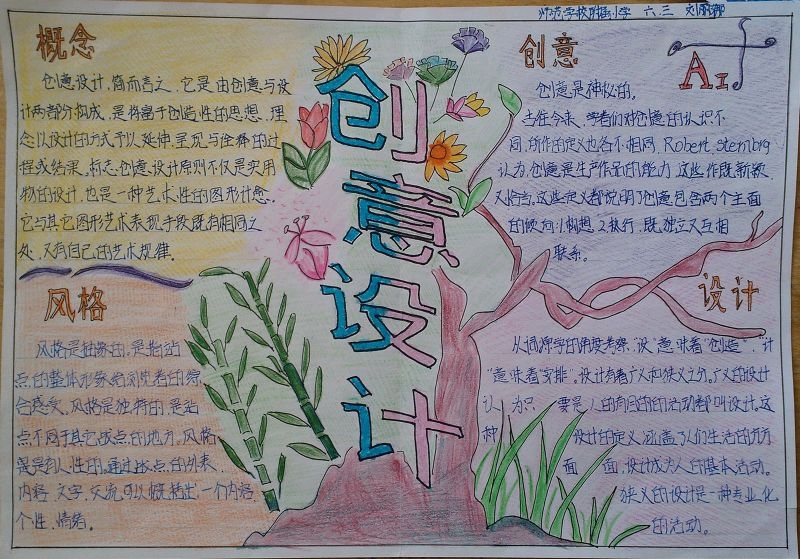 师范学校附属小学 六、三
概念
创意设计,简而言之,它是由创意与设
计两部分构成,是将富于创造性的思想、理
念以设计的方式予以延伸、呈现与诠释的过
程或结果。标志创意设计原则不仅是实用
物的设计,也是一种艺术性的图形计意。
它与其它图形艺术表现手段既有相同之
处,又有自己的艺术规律。
创意设计
创意
AI
创意是神秘的。
古往今来,学者们对创意的认识不
同,所作的定义也各不相同,Robert sternbrg
认为,创意是生产作品的能力,这些作既新颖
又恰当。这些定义都说明了创意包含两个主面
的倾向:1.构想,2.执行,既独立又互相
联系。
风格
风格是抽象的,是指站
点的整体形象给浏览者的综
合感受。风格是独特的,是站
点不同于其它站点的地方。风格
是有人性的,通过站点的外表,
内容,文字,交流可以概括出一个内容,
个性,情绪。
设计
从词源学的角度考察,"设"意味着"创造","计
"意味着"安排"。设计有着广义和狭义之分。广义的设计
认为只要是人的有目的的活动都叫设计。这
种设计的定义涵盖了人们生活的方方
面面,设计成为人的基本活动。
狭义的设计是一种专业化
的活动。